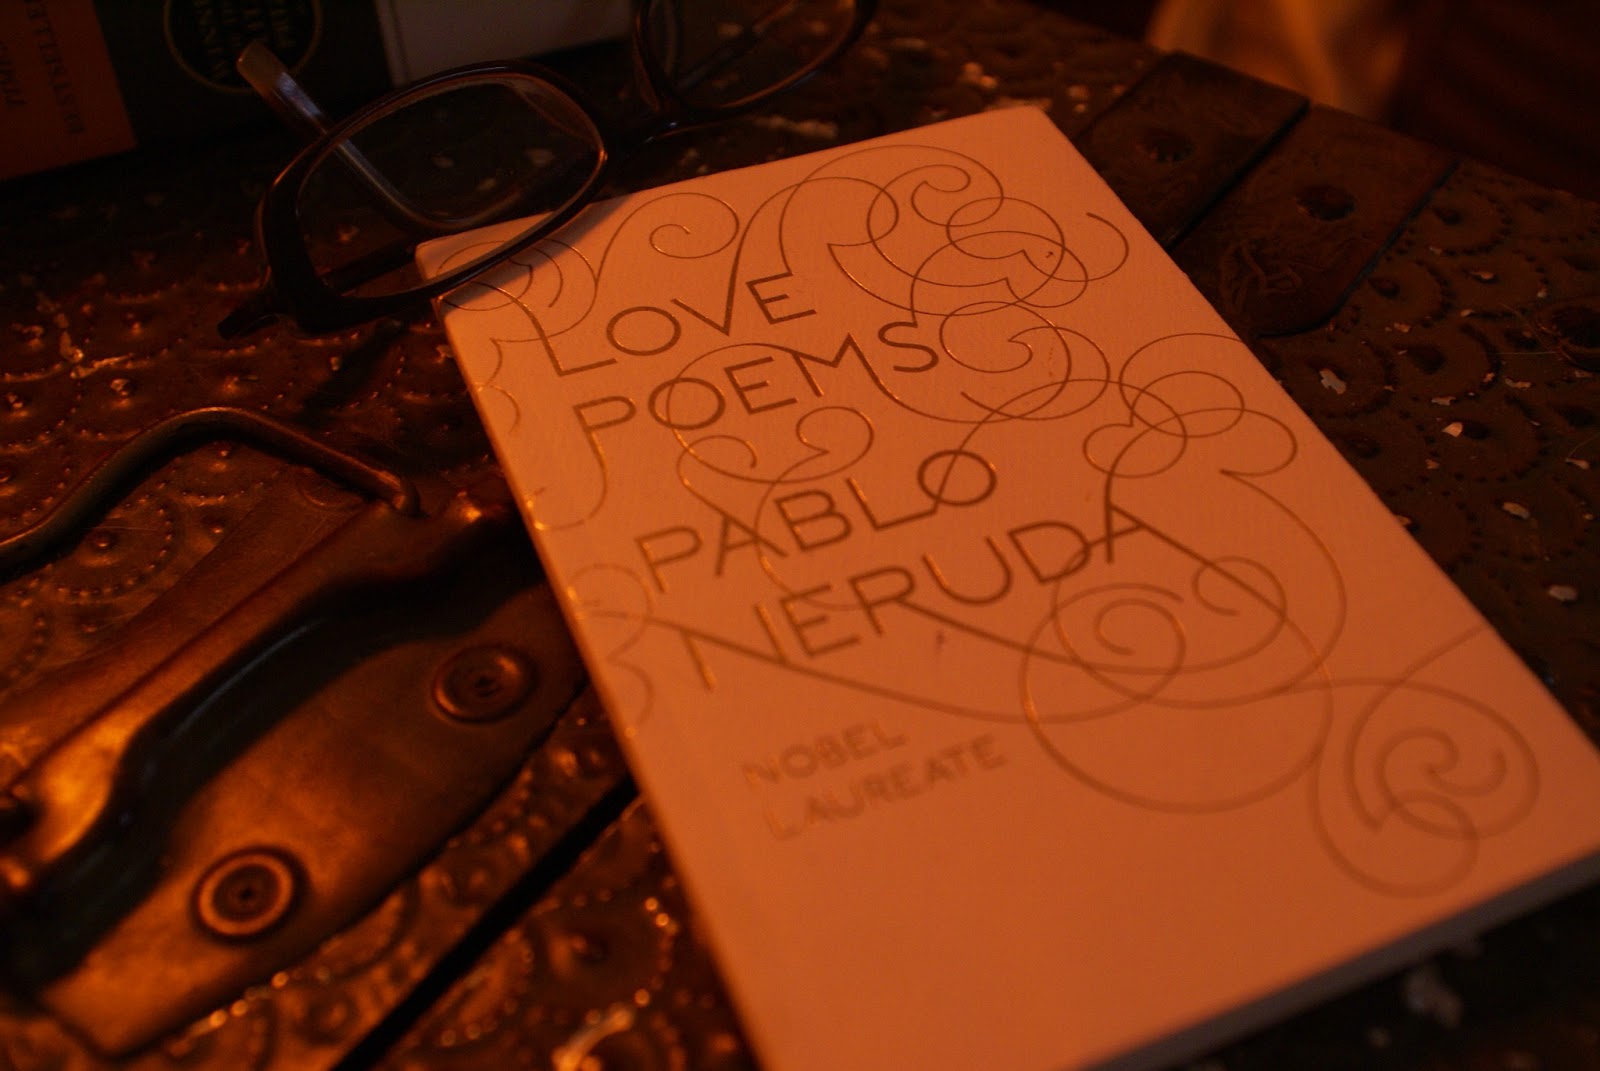 LOVE
POEMS
PABLO
NERUDA
NOBEL
LAUREATE